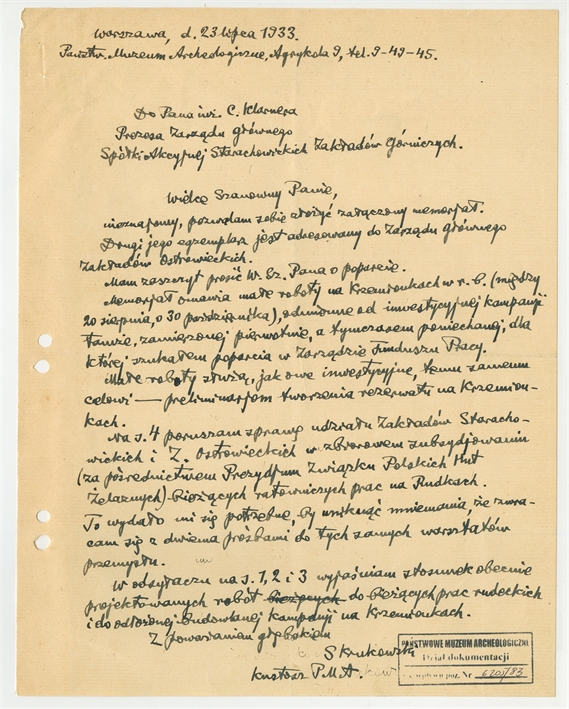 Warszawa, d. 23 lipca 1933.
Państw. Muzeum Archeologiczne, Agrykola 9, tel. 9-49-45.
Do Pana inż. C. Klarnera
Prezesa Zarządu głównego
Spółki Akcyjnej Starachowickich Zakładów Górniczych.
Wielce Szanowny Panie,
nieznajomy, pozwalam sobie złożyć załączony memorjał.
Drugi jego egzemplarz jest adresowany do Zarządu głównego
Zakładów Ostrowieckich.
Mam zaszczyt prosić W. Sz. Pana o poparcie.
Memorjał omawia małe roboty na Krzemionkach w r. b. (między
20 sierpnia, a 30 października), odmienne od inwestycyjnej kampanji
tamże, zamierzonej pierwotnie, a tymczasem poniechanej, dla
której szukałem poparcia w Zarządzie Funduszu Pracy.
Małe roboty służą, jak owe inwestycyjne, temu samemu
celowi — preliminarjom tworzenia rezerwatu na Krzemion-
kach.
Na s. 4 poruszam sprawę udziału Zakładów Staracho-
wickich i Z. Ostrowieckich w zbiorowem subsydjowaniu
(za pośrednictwem Prezydjum Związku Polskich Hut
Żelaznych) bieżących ratowniczych prac na Rudkach.
To wydało mi się potrzebne, by uniknąć mniemania, że zwra-
cam się z dwiema prośbami do tych samych warsztatów
przemysłu.
W odsyłaczu na s. 1, 2 i 3 wyjaśniam stosunek obecnie
projektowanych robót bieżących do bieżących prac rudeckich
i do odłożonej budowlanej kampanji na Krzemionkach.
Z poważaniem głębokiem
S Krukowski
kustosz P.M.A.
PAŃSTWOWE MUZEUM ARCHEOLOGICZNE
Dział dokumentacji
wpływu poz. Nr 6201/83